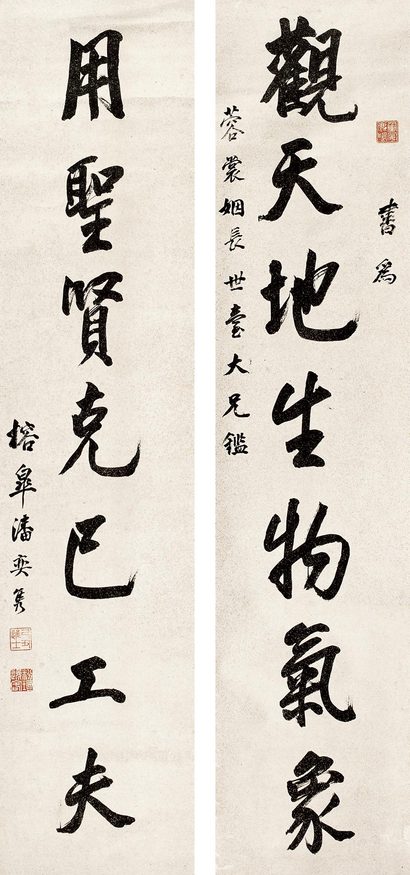 書為
觀天地生物氣象
蓉裳姻長世臺大兄鑑
用聖賢克己工夫
榕皋潘奕隽